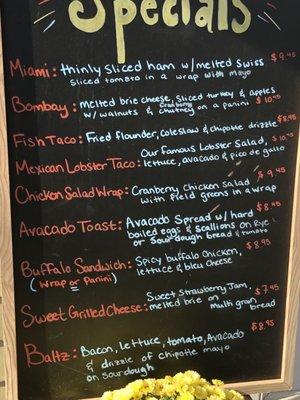 Specials
Miami: thinly sliced ham w/melted Swiss $9.45
sliced tomato in a wrap with mayo
Bombay: melted brie cheese, sliced turkey & apples
w/walnuts & cranberry chutney on a panini $10.45
Fish Taco: Fried flounder, coleslaw & chipotle drizzle $8.95
Mexican Lobster Taco: Our famous Lobster Salad, $10.45
lettuce, avocado & pico de gallo
Chicken Salad Wrap: Cranberry Chicken Salad $9.45
with field greens in a wrap
Avacado Toast: Avacado Spread w/hard $8.45
boiled eggs & scallions on Rye
or Sourdough bread & tomato
Buffalo Sandwich: Spicy buffalo Chicken, $8.95
(wrap or Panini) lettuce & bleu cheese
Sweet Grilled Cheese: Sweet Strawberry Jam, $7.45
melted brie on multi grain
bread
Baltz: Bacon, lettuce, tomato, Avacado $8.95
& drizzle of chipotle mayo
on sourdough